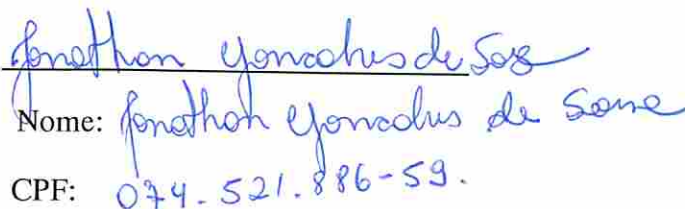 Jonathan Goncalves de Sos
Nome: Jonathon Goncalves de Sousa
CPF: 074.521.886-59.